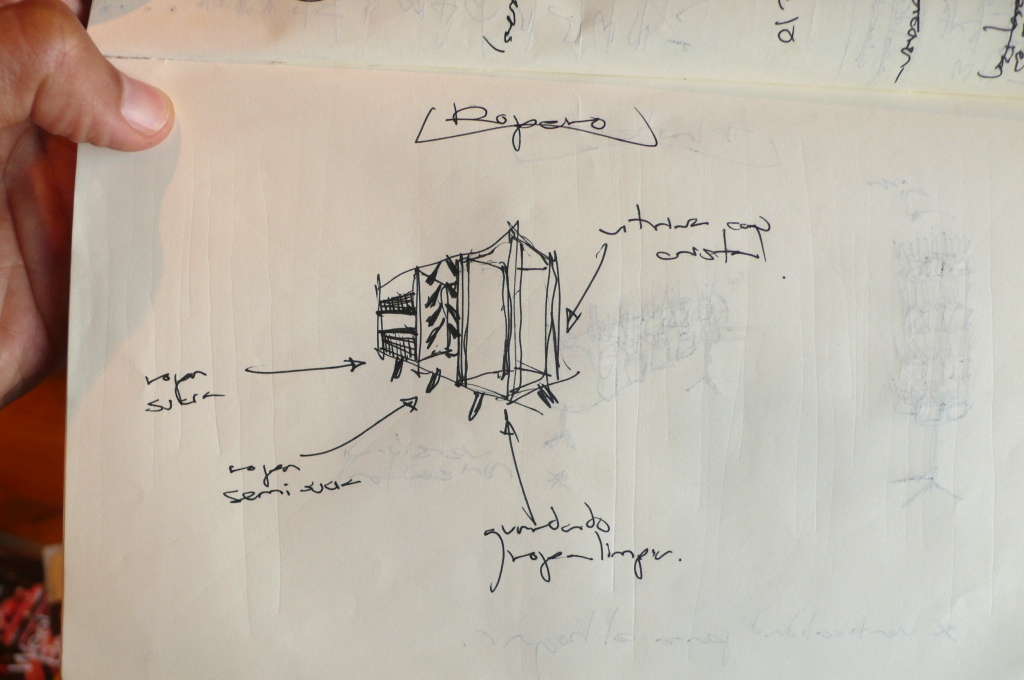 Ropero
vitrina con
cristal.
ropa
sucia
ropa
semi sucia
guardando
ropa limpia.